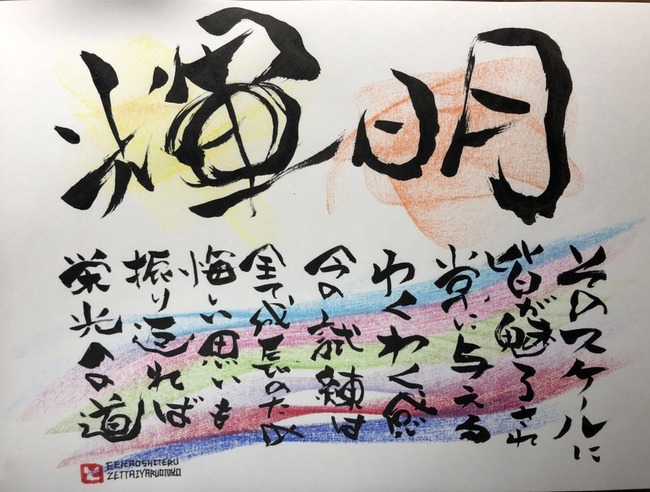 明輝
そのスケールに
皆が魅了され
常に与える
わくわく感
今の試練は
全て成長のため
悔しい思いも
振り返れば
栄光への道
EEKAOSHITERU
ZETTAIYARUOTOKO